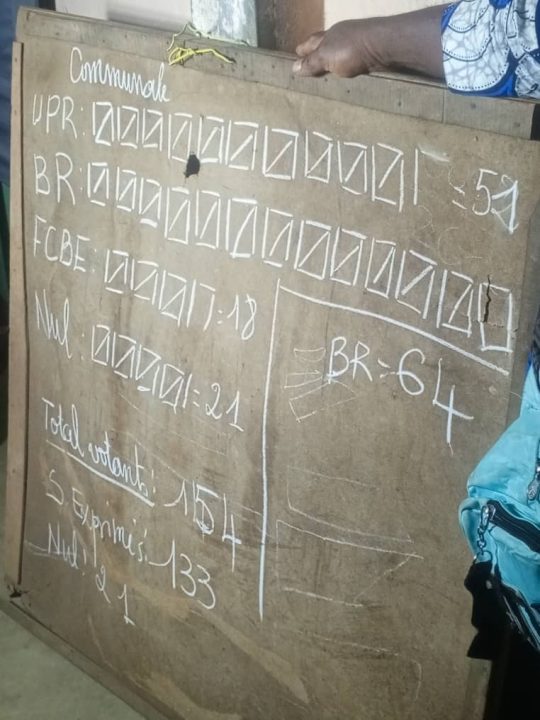 Communale
UPR: = 51
BR:
FCBE: = 18
Nul: = 21
BR = 64
Total votants: 154
S. Exprimés: 133
Nul: 21